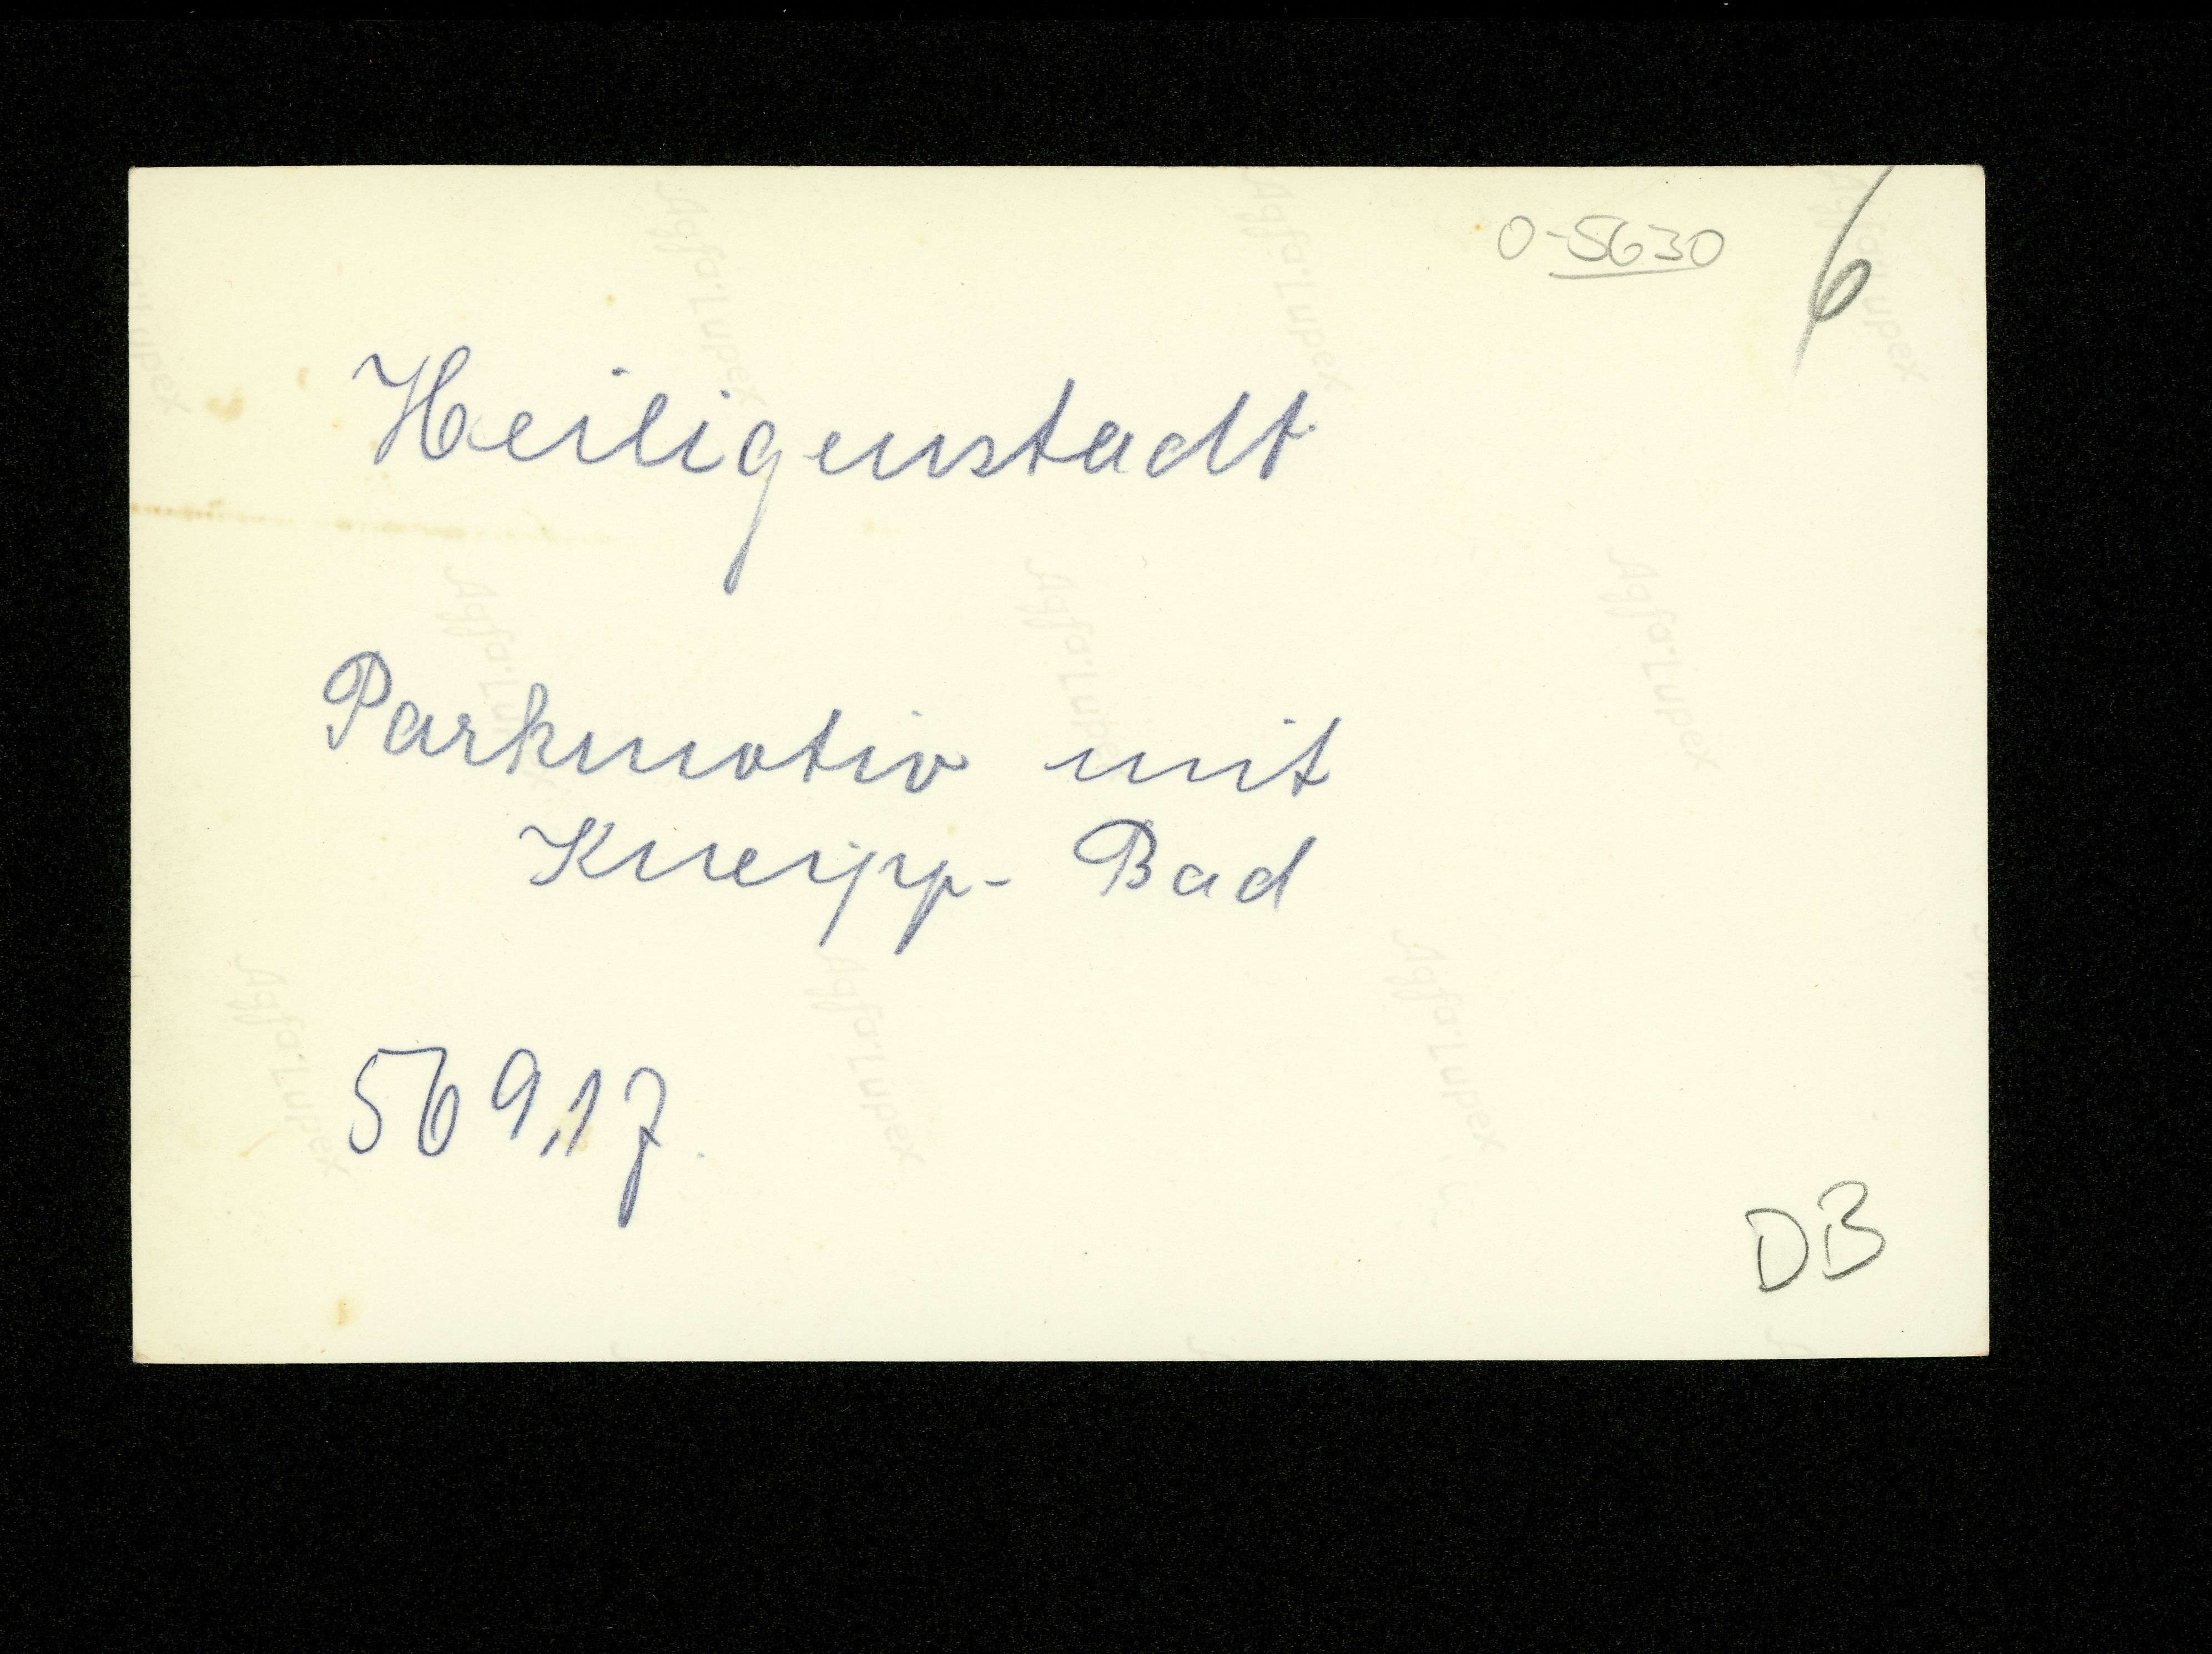 0-5630
6
Heiligenstadt
Parkmotiv mit
Kneipp-Bad
569,17.
DB
Agfa Lupex
Agfa Lupex
Agfa Lupex
Agfa Lupex
Agfa Lupex
Agfa Lupex
Agfa Lupex
Agfa Lupex
Agfa Lupex